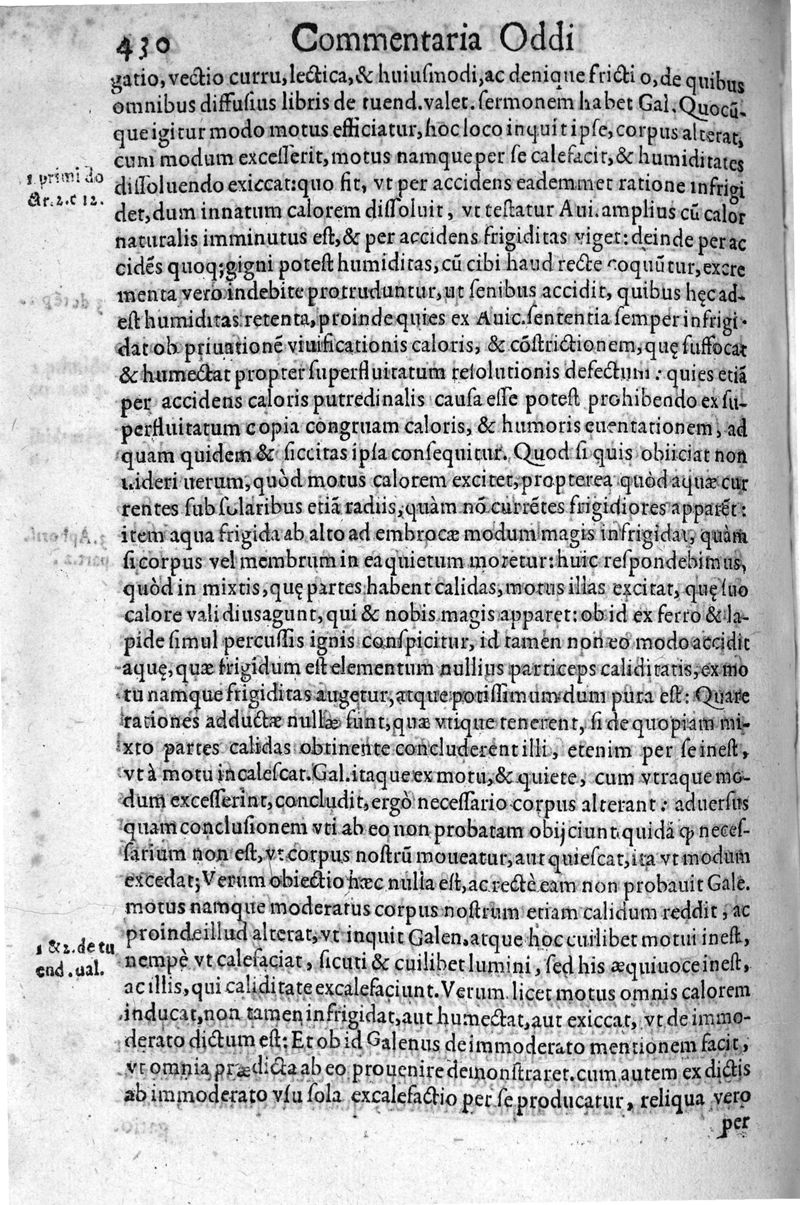 430 Commentaria Oddi
gatio, vectio curru, lectica, & huiusmodi, ac denique fricti o, de quibus
omnibus diffusius libris de tuend. valet. sermonem habet Gal. Quocū-
que igitur modo motus efficiatur, hoc loco inquit ipse, corpus alterat,
cum modum excesserit, motus namque per se calefacit, & humiditates
1 primi do
dissoluendo exiccat: quo fit, vt per accidens eademmet ratione infrigi
&r. 2. c 12.
det, dum innatum calorem dissoluit, vt testatur Aui. amplius cū calor
naturalis imminutus est, & per accidens frigiditas viget: deinde per ac
cidēs quoq; gigni potest humiditas, cū cibi haud recte coquūtur, excre
menta vero indebite protruduntur, ut senibus accidit, quibus hęc ad-
est humiditas retenta, proinde quies ex Auic. sententia semper infrigi-
dat ob priuationē viuificationis caloris, & cōstrictionem, quę suffocat
& humectat propter superfluitatum resolutionis defectum: quies etiā
per accidens caloris putredinalis causa esse potest prohibendo ex su-
perfluitatum copia congruam caloris, & humoris euentationem, ad
quam quidem & siccitas ipsa consequitur. Quod si quis obiiciat non
uideri uerum, quòd motus calorem excitet, propterea quòd aquæ cur
rentes sub solaribus etiā radiis, quàm nō currētes frigidiores apparēt:
item aqua frigida ab alto ad embrocæ modum magis infrigidat, quàm
si corpus vel membrum in ea quietum moretur: huic respondebimus,
quòd in mixtis, quę partes habent calidas, motus illas excitat, quę suo
calore validius agunt, qui & nobis magis apparet: ob id ex ferro & la-
pide simul percussis ignis conspicitur, id tamen non eo modo accidit
aquę, quæ frigidum est elementum nullius particeps caliditatis, ex mo
tu namque frigiditas augetur, atque potissimum dum pura est: Quare
rationes adductæ nullæ sunt, quæ vtique tenerent, si de quopiam mi-
xto partes calidas obtinente concluderent illi, etenim per se inest,
vt à motu incalescat. Gal. itaque ex motu, & quiete, cum vtraque mo-
dum excesserint, concludit, ergò necessario corpus alterant: aduersus
quam conclusionem vti ab eo non probatam obijciunt quidā ꝙ neces-
sarium non est, vt corpus nostrū moueatur, aut quiescat, ita vt modum
excedat; Verum obiectio hæc nulla est, ac rectè eam non probauit Gale.
motus namque moderatus corpus nostrum etiam calidum reddit, ac
1 &2. de tu
proinde illud alterat, vt inquit Galen. atque hoc cuilibet motui inest,
end. ual.
nempè vt calefaciat, sicuti & cuilibet lumini, sed his æquiuoce inest,
ac illis, qui caliditate excalefaciunt. Verum licet motus omnis calorem
inducat, non tamen infrigidat, aut humectat, aut exiccat, vt de immo-
derato dictum est: Et ob id Galenus de immoderato mentionem facit,
vt omnia prædicta ab eo prouenire demonstraret. cum autem ex dictis
ab immoderato vsu sola excalefactio per se producatur, reliqua vero
per